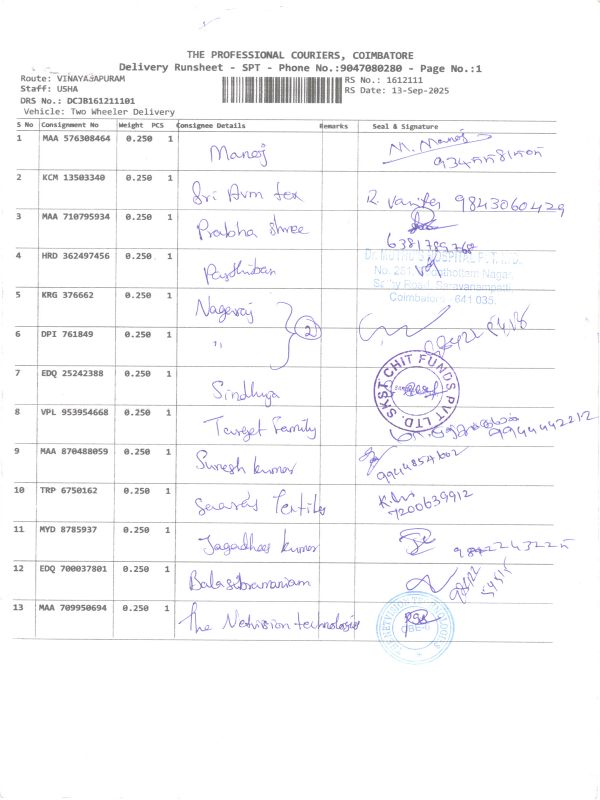 THE PROFESSIONAL COURIERS, COIMBATORE
Delivery Runsheet - SPT - Phone No.:9047080280 - Page No.:1
Route: VINAYAGAPURAM
RS No.: 1612111
Staff: USHA
RS Date: 13-Sep-2025
DRS No.: DCJB161211101
Vehicle: Two Wheeler Delivery
S No Consignment No Weight PCS Consignee Details Remarks Seal & Signature
1 MAA 576308464 0.250 1 Manoj M. Manoj
2 KCM 13503340 0.250 1 Sri Arm tex R. Vanitha 9843060429
3 MAA 710795934 0.250 1 Prabha shree 6381789768
4 HRD 362497456 0.250 1 Parthiban
Coimbatore 641 035.
5 KRG 376662 0.250 1 Nagaraj
2
6 DPI 761849 0.250 1 "
7 EDQ 25242388 0.250 1 Sindhuja SKST CHIT FUNDS PVT LTD.
8 VPL 953954668 0.250 1 Target Family 9944442212
9 MAA 870488059 0.250 1 Suresh kumar
10 TRP 6750162 0.250 1 Saravas Textiles 7200639912
11 MYD 8785937 0.250 1 Jagadhees kumar
12 EDQ 700037801 0.250 1 Balasubramaniam
13 MAA 709950694 0.250 1 The Netvision technologies